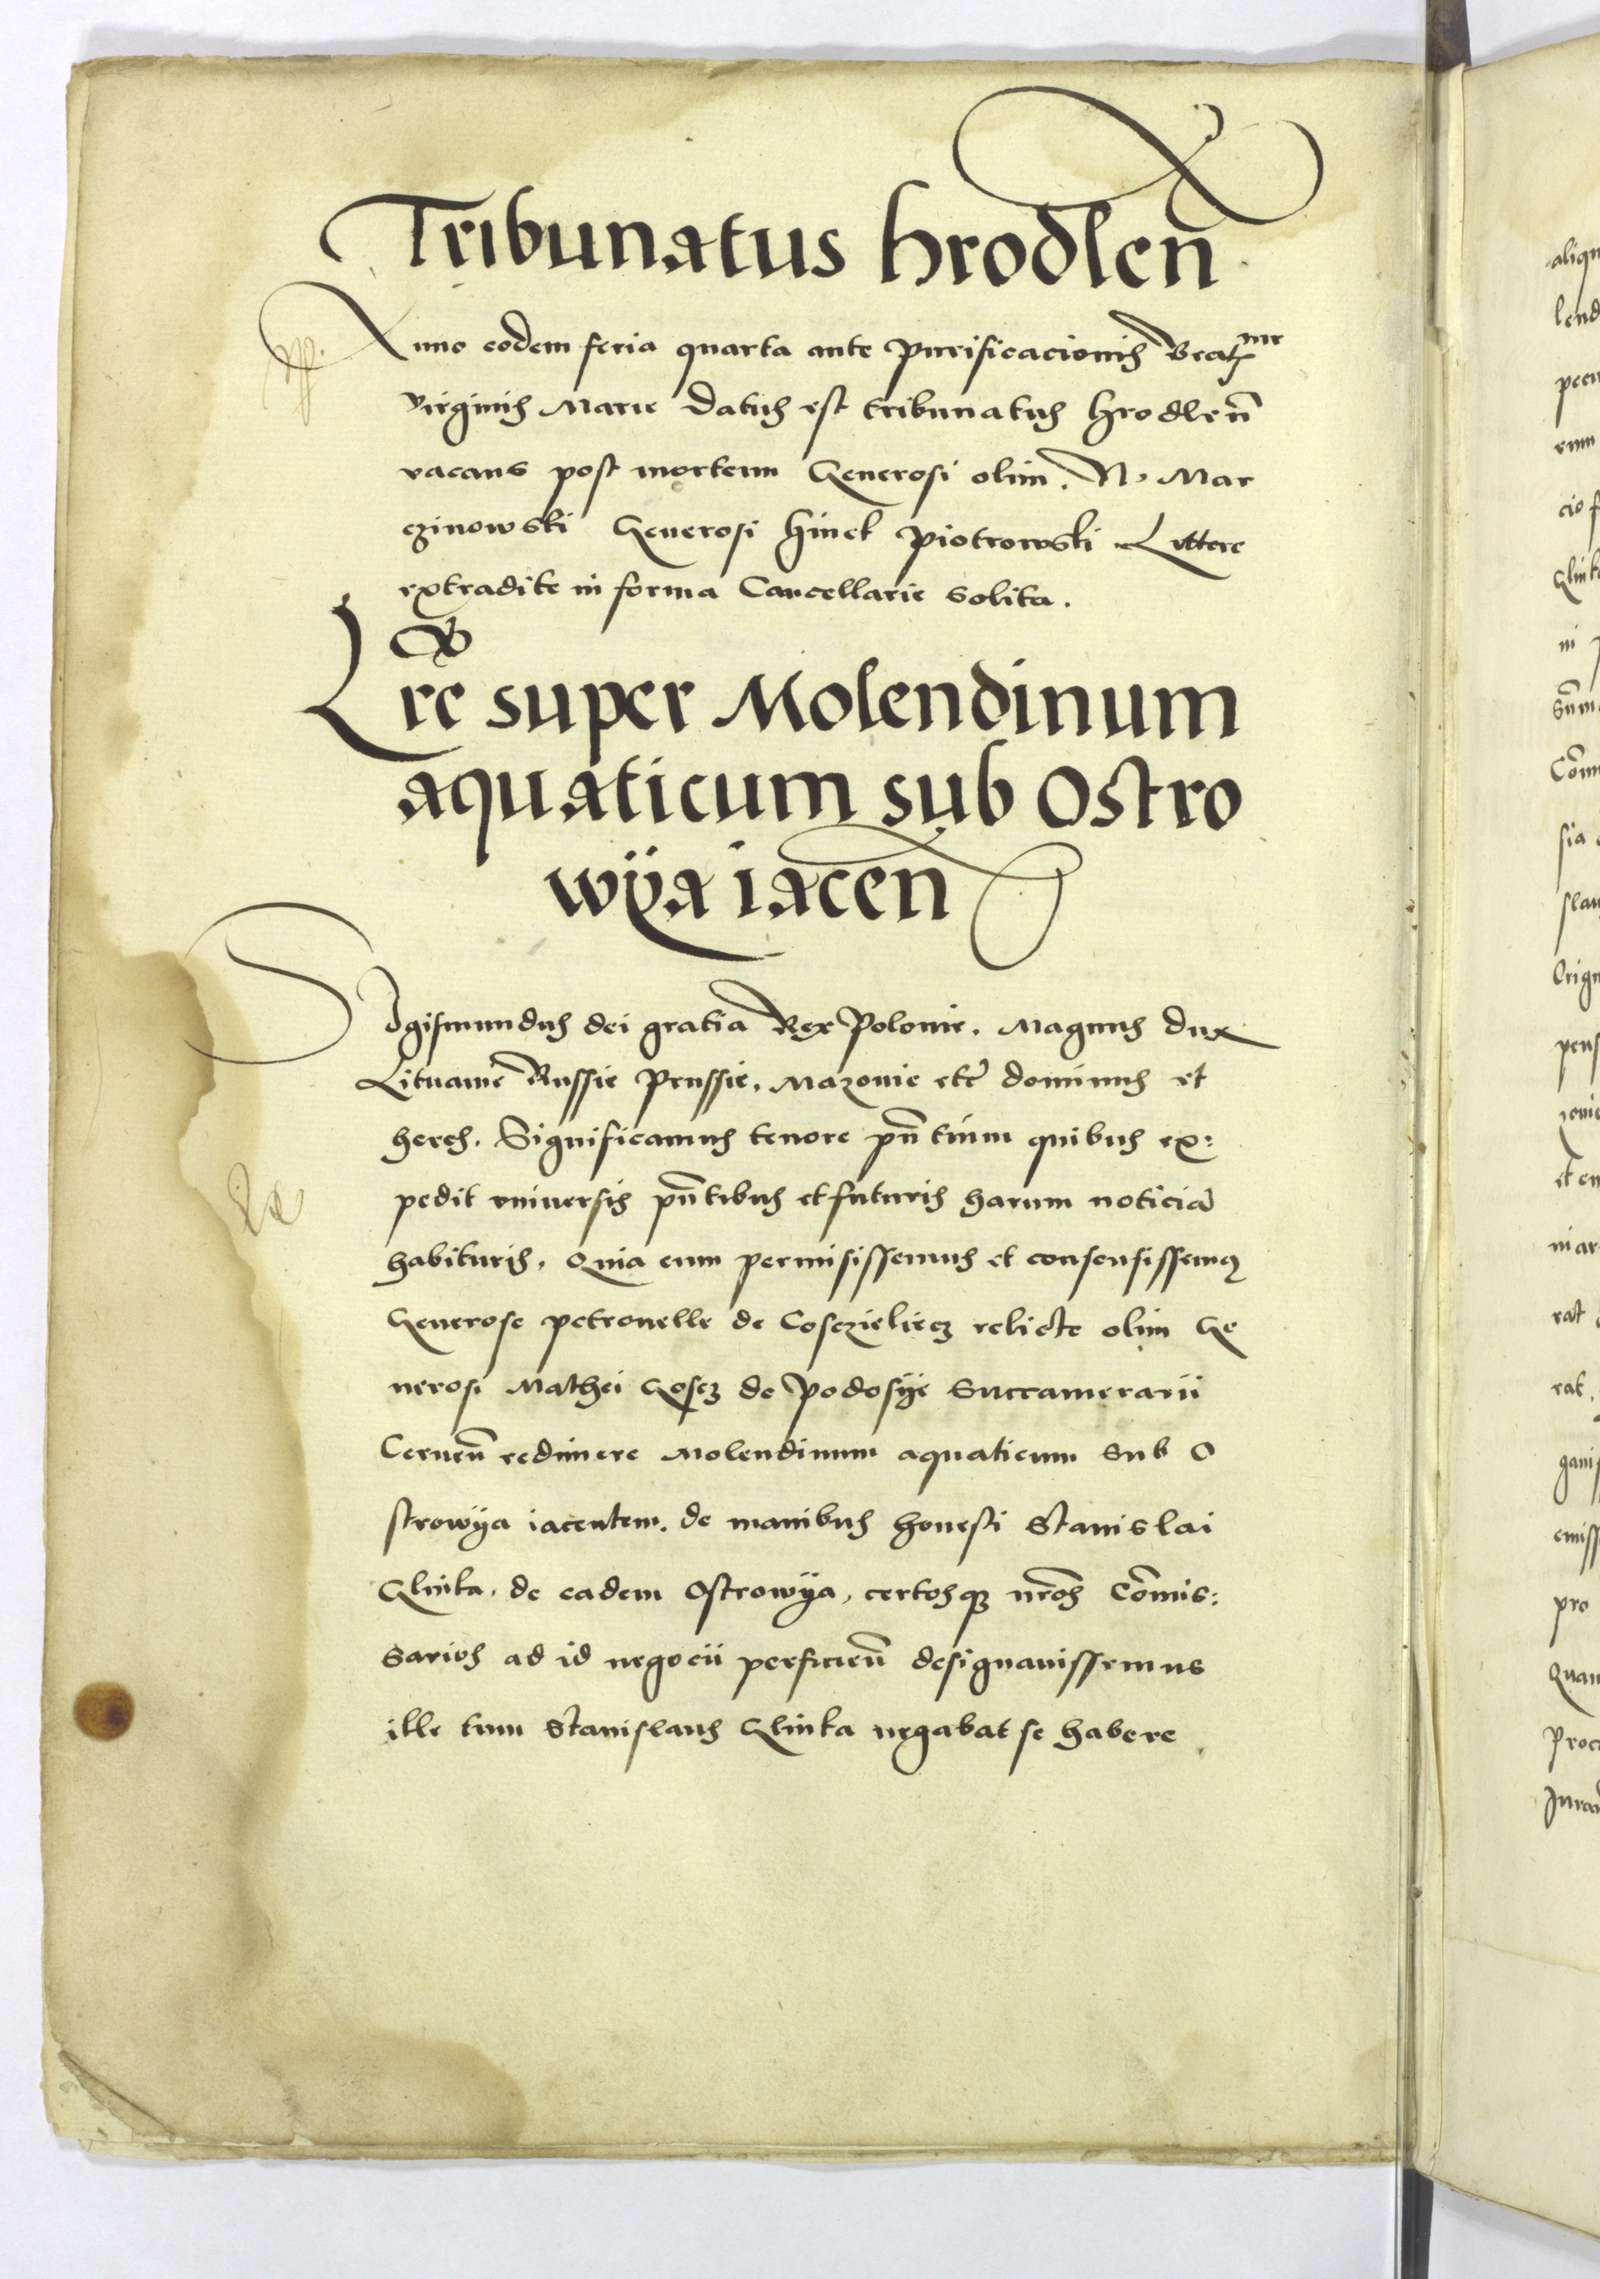 Tribunatus hrodlen̄
Anno eodem feria quarta ante Purificacionis Beatme
virginis Marie datus est tribunatus hrodlen̄
vacans post mortem Generosi olim. N. Mar
czinowski Generosi hinek Piotrowski Littere
extradite in forma Cancellarie solita.
Lr̄e super Molendinum
aquaticum sub Ostro
wÿa iacen̄
Sigismundus dei gratia Rex Polonie. Magnus dux
Lituanie Russie Prussie. Mazovie etc̄ dominus et
heres. Significamus tenore pn̄tium quibus ex:
pedit vniversis pn̄tibus et futuris harum noticiā
habituris. Quia cum permisissemus et consensissemꝰ
Generose petronelle de Cosczieliecz relicte olim Ge
nerosi Mathei Coscz de Podosÿe Succamerarii
Cernen̄ redimere Molendinum aquaticum sub O
strowÿa iacentem. de manibus honesti Stanislai
Glinka. de eadem Ostrowÿa, certosqꝫ nr̄os Com̄is:
sarios ad id negocii perficien̄ designauissemus
ille tum Stanislaus Glinka negabat se habere
aliqu
lend
cio f
Glink
in
Sūm
Com̄
sia
slau
Orig
pens
et en
mar
rat
rat.
emiss
pro
Quam
Proc